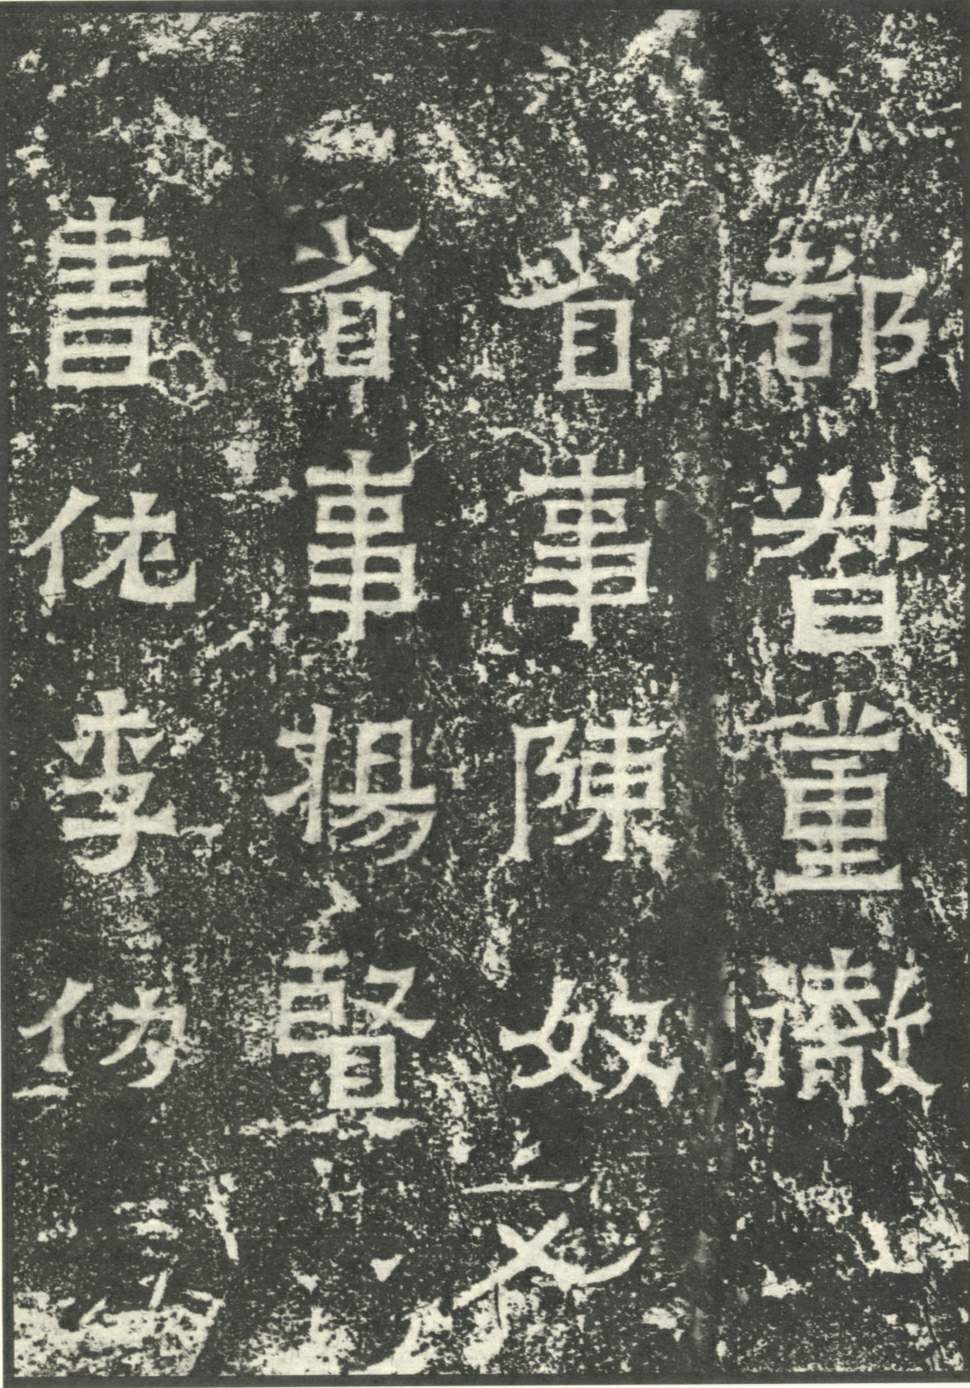 都督董徹
省事陳奴文
省事楊賢
書佐李仂